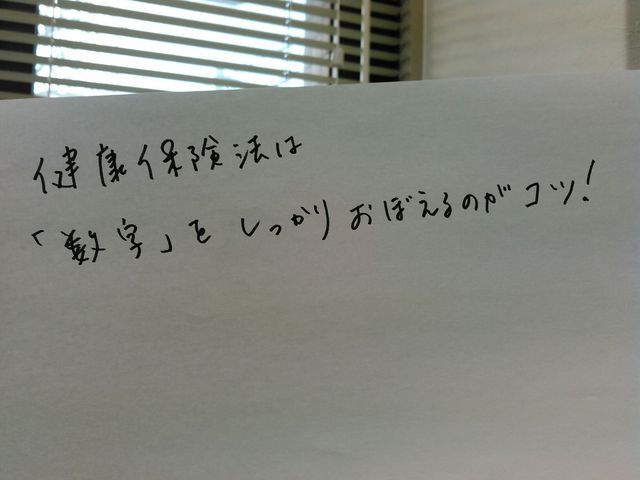 健康保険法は
「数字」をしっかりおぼえるのがコツ!